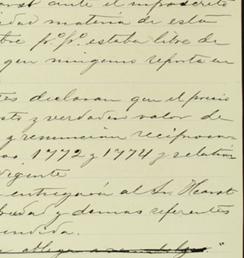 ante el infrascrito
materia de esta
tre pr.º pº. estaba libre de
que ninguno reporta en
declaran que el precio
y verdadero valor de
y renuncian reciproca
1772 y 1774 y relativ
vigente
entregarán al Sr. Hearst
y demas referentes
vendida.